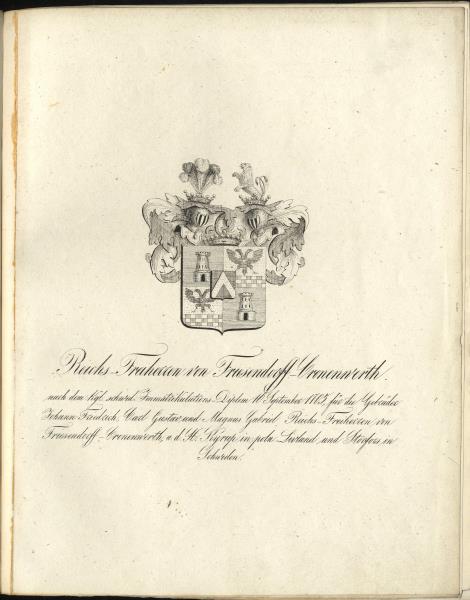 Reichs-Freiherren von Friesendorff-Cronenwerth.
nach dem Kgl. schwed. Immatrikulations-Diplom September für die Gebrüder
Johann Friedrich, Carl Gustav und Magnus Gabriel Reichs-Freiherren von
Friesendorff-Cronenwerth, a. d. H. Kyrup in poln. Livland und Storfors in
Schweden.